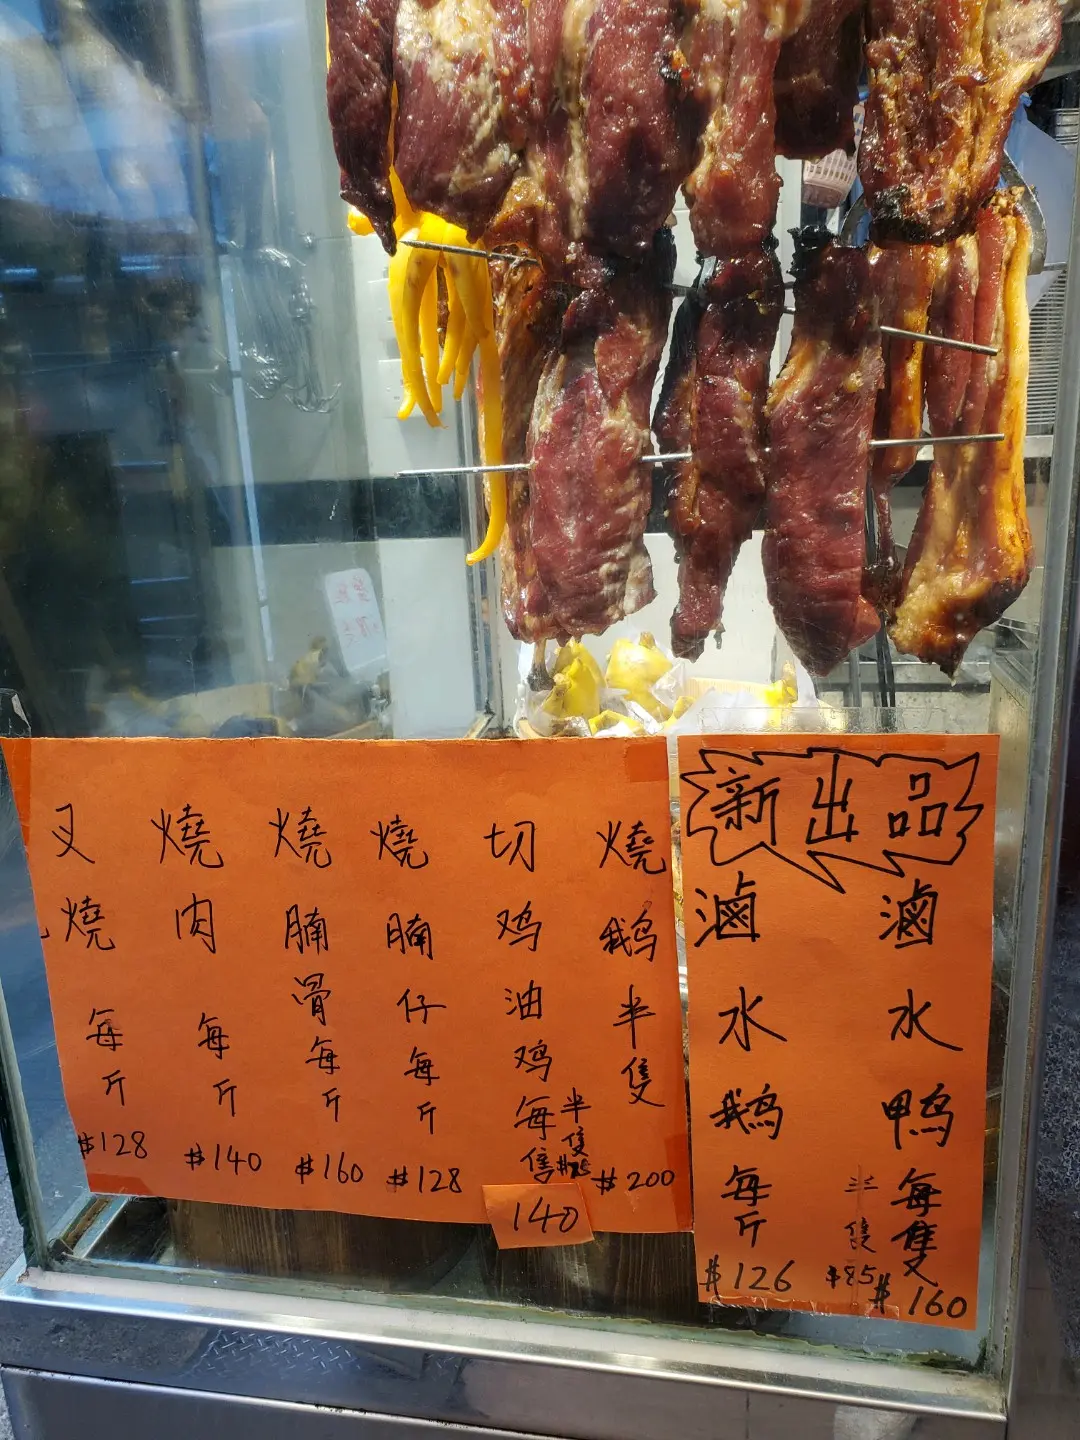 叉燒每斤
$128
燒肉每斤
$140
燒腩骨每斤
$160
燒腩仔每斤
$128
切鸡油鸡每隻
140
半隻
$75
燒鹅半隻
$200
新出品
滷水鹅每斤
$126
滷水鸭每隻
$160
半隻
$85